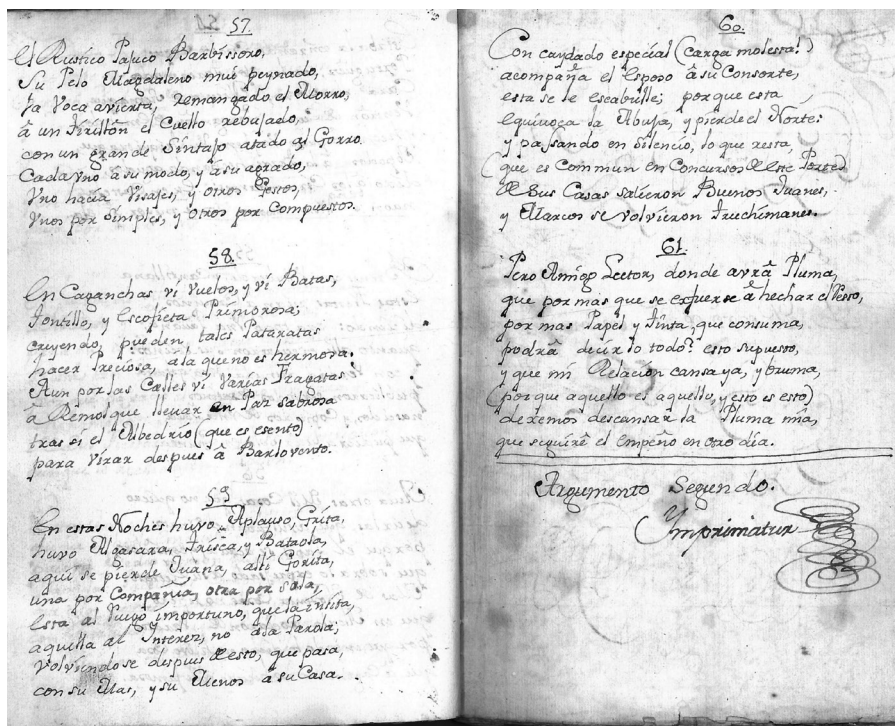 57.
El Rustico Pajuco Barbissono,
Su Pelo Magdaleno mui peynado,
la Voca avierta, remangado el Morro,
â un Tirillòn el Cuello rebajado,
con un grande Sintajo atado al Gorro.
Cada vno â su modo, y â su agrado,
Vno hacia Visajes, y otros Gestos,
Vnos por Simples, y otros por Compuestos.
58.
En Caganchas vi Vuelos, y vi Batas,
Tontillo, y Escofieta Primorosa;
creyendo, pueden tales Pataratas
hacer Preciosa, âla que no es hermosa.
Aun por las Calles vi Varias Fragatas
â Remolque llevar en Paz sabrosa
tras si el Albedrio (que es esento)
para virar despues â Barlovento.
59
En estas Noches huvo Aplauso, Grita,
huvo Algasara, Trisca, y Bataola,
aqui se pierde Juana, alli Gorita,
una por Compañia, otra por sola,
Esta al Ruego importuno, que la insita,
aquella al Interez, no âla Parola;
Volviendose despues de esto, que pasa,
con su Mas, y su Menos â su Casa.
60.
Con cuydado especial (carga molesta!)
acompaña el Esposo â su Consorte,
esta se le escabulle; porque esta
equivoca la Abuja, y pierde el Norte:
y passando en Silencio, lo que resta,
(que es commun en Concursos de este Porte)
de sus Casas salieron Buenos Juanes,
y Marcos se volvieron Truchimanes.
61.
Pero Amigo Lector, donde avrâ Pluma,
que por mas que se esfuerse â hechar el Resto,
por mas Papel y Tinta, que consuma,
podrâ decirlo todo? esto supuesto,
y que mi Relacion cansa ya, y bruma,
(porque aquello es aquello, y esto es esto)
dexemos descansar la Pluma mia,
que seguirè el empeño en otro dia.
Argumento Segundo.
Ymprimatur